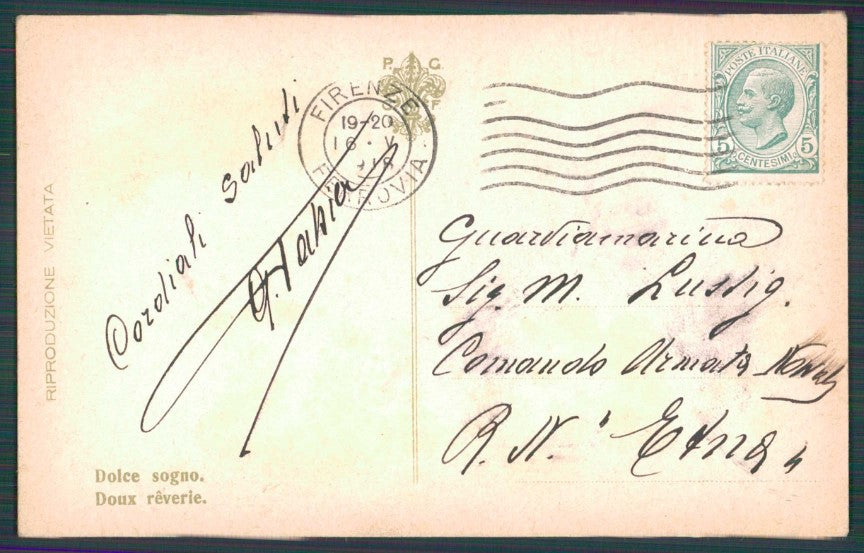 P. G.
F
FIRENZE
19-20
16 · V
FERROVIA
POSTE ITALIANE
5 5
CENTESIMI
RIPRODUZIONE VIETATA
Cordiali saluti
Guardiamarina
Sig. M. Lussig.
Comando Armata Navale
R. N. "Etna"
Dolce sogno.
Doux rêverie.